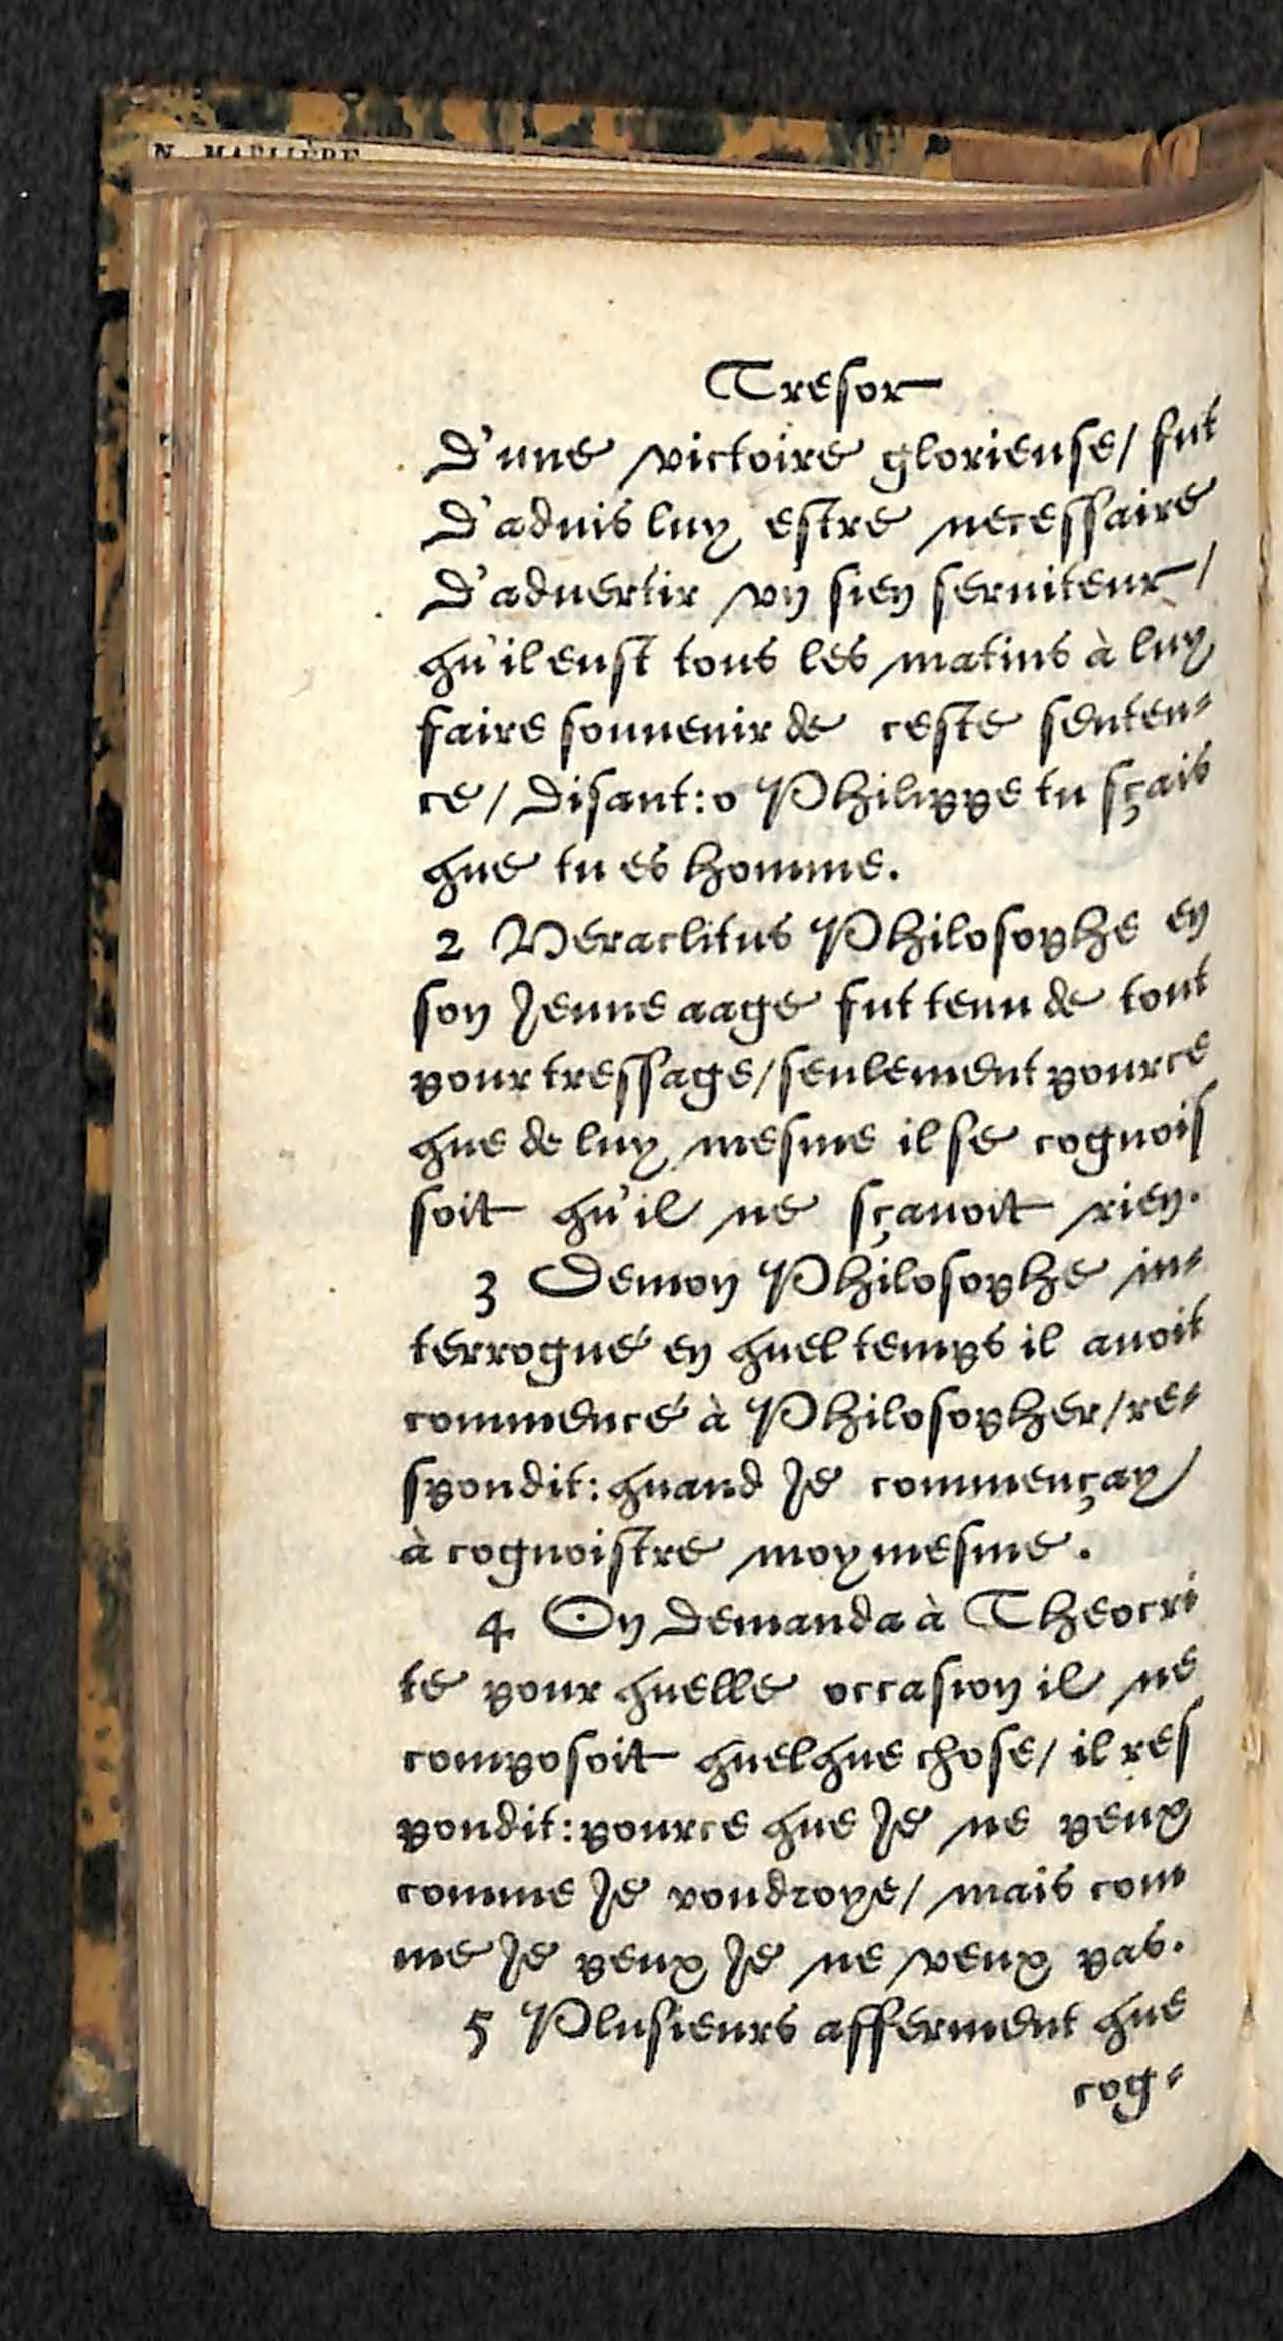 N. MARLIÈRE
Tresor
D'une victoire glorieuse/ fut
D'aduis luy estre necessaire
D'aduertir vn sien seruiteur/
qu'il eust tous les matins à luy
faire souuenir de ceste senten-
ce/ disant: o Philippe tu sçais
que tu es homme.
2 Heraclitus Philosophe en
son Jeune aage fut tenu de tout
pour tressage/ seulement pource
que de luy mesme il se cognois
soit qu'il ne sçauoit rien.
3 Demon Philosophe in-
terrogué en quel temps il auoit
commencé à Philosopher/ re-
spondit: quand Je commençay
à cognoistre moymesme.
4 On demanda à Theocri
te pour quelle occasion il ne
composoit quelque chose/ il res
pondit: pource que Je ne peux
comme Je voudroye/ mais com
me Je peux Je ne veux pas.
5 Plusieurs afferment que
cog-